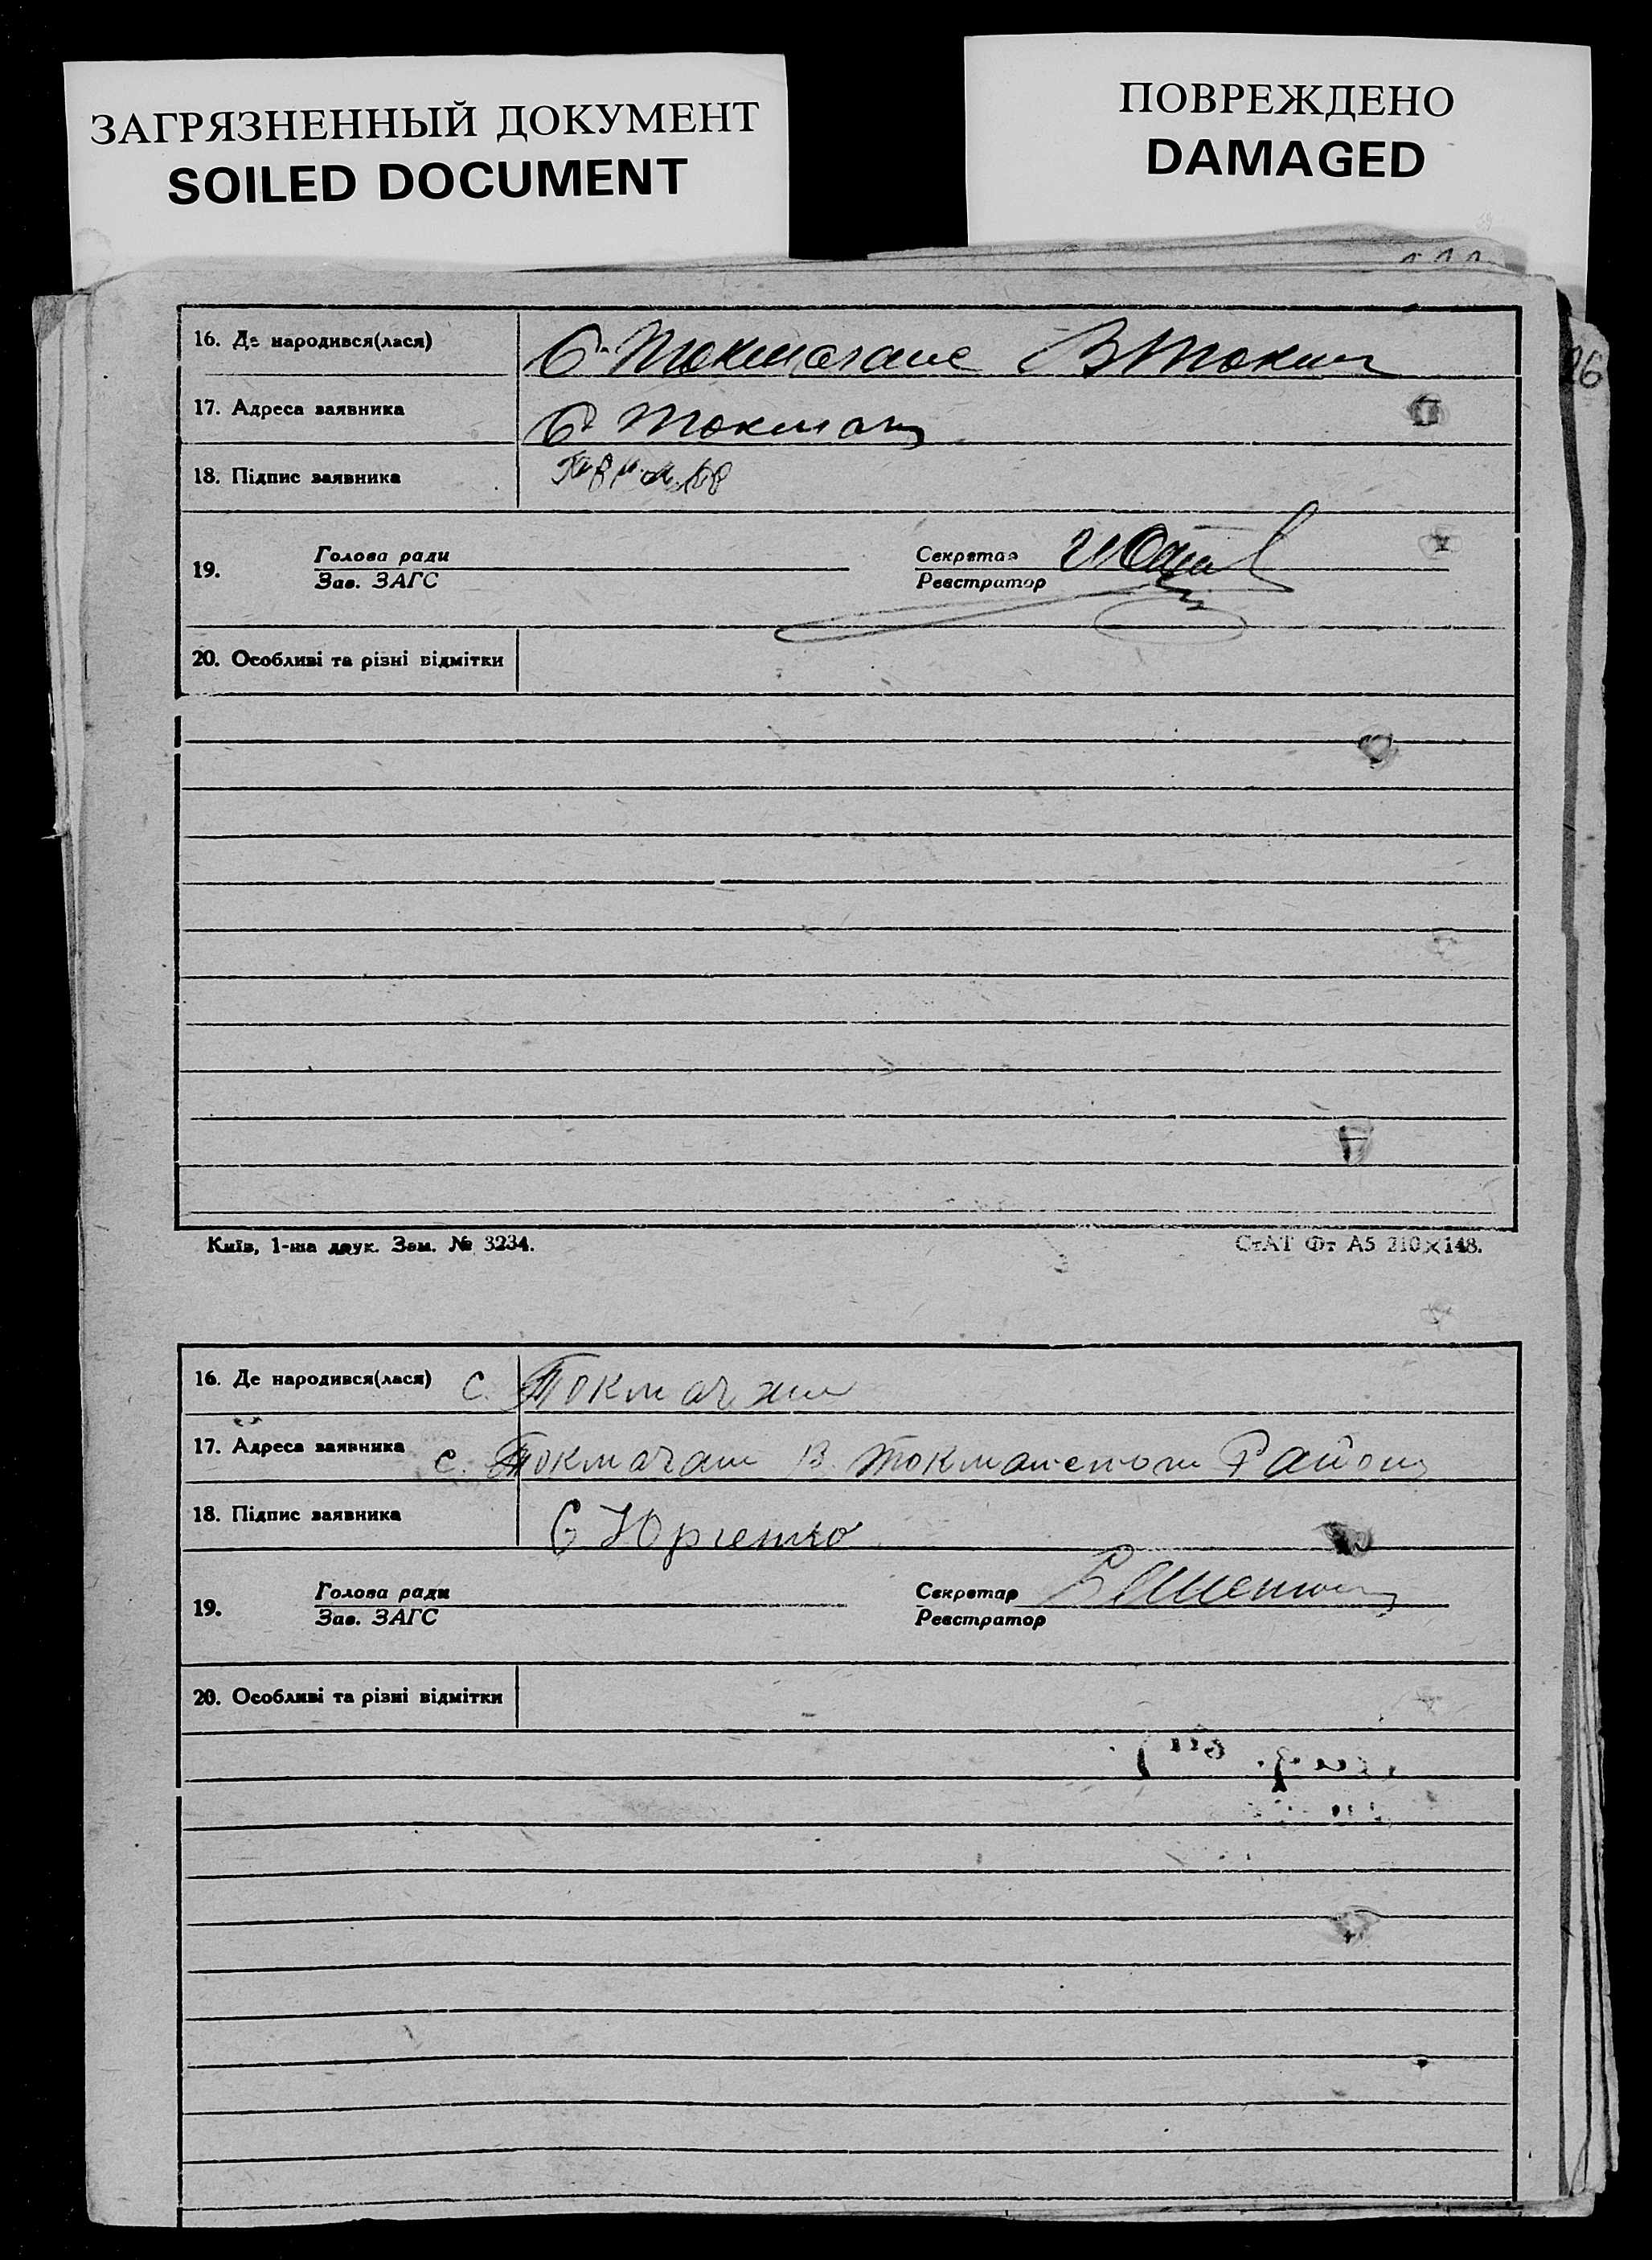 ЗАГРЯЗНЕННЫЙ ДОКУМЕНТ
SOILED DOCUMENT
ПОВРЕЖДЕНО
DAMAGED
16. Де народився(лася)
С. Токмачане В Токм
17. Адреса заявника
С Токмач
18. Підпис заявника
19. Голова ради Секретар
Зав. ЗАГС Реєстратор
20. Особливі та різні відмітки
Київ, 1-ша друк. Зам. № 3234. СтАТ Фт А5 210×148.
16. Де народився(лася) с. Токмачки
17. Адреса заявника с. Токмачан В. Токмаченом Району
18. Підпис заявника С Юрченко
19. Голова ради Секретар
Зав. ЗАГС Реєстратор
20. Особливі та різні відмітки